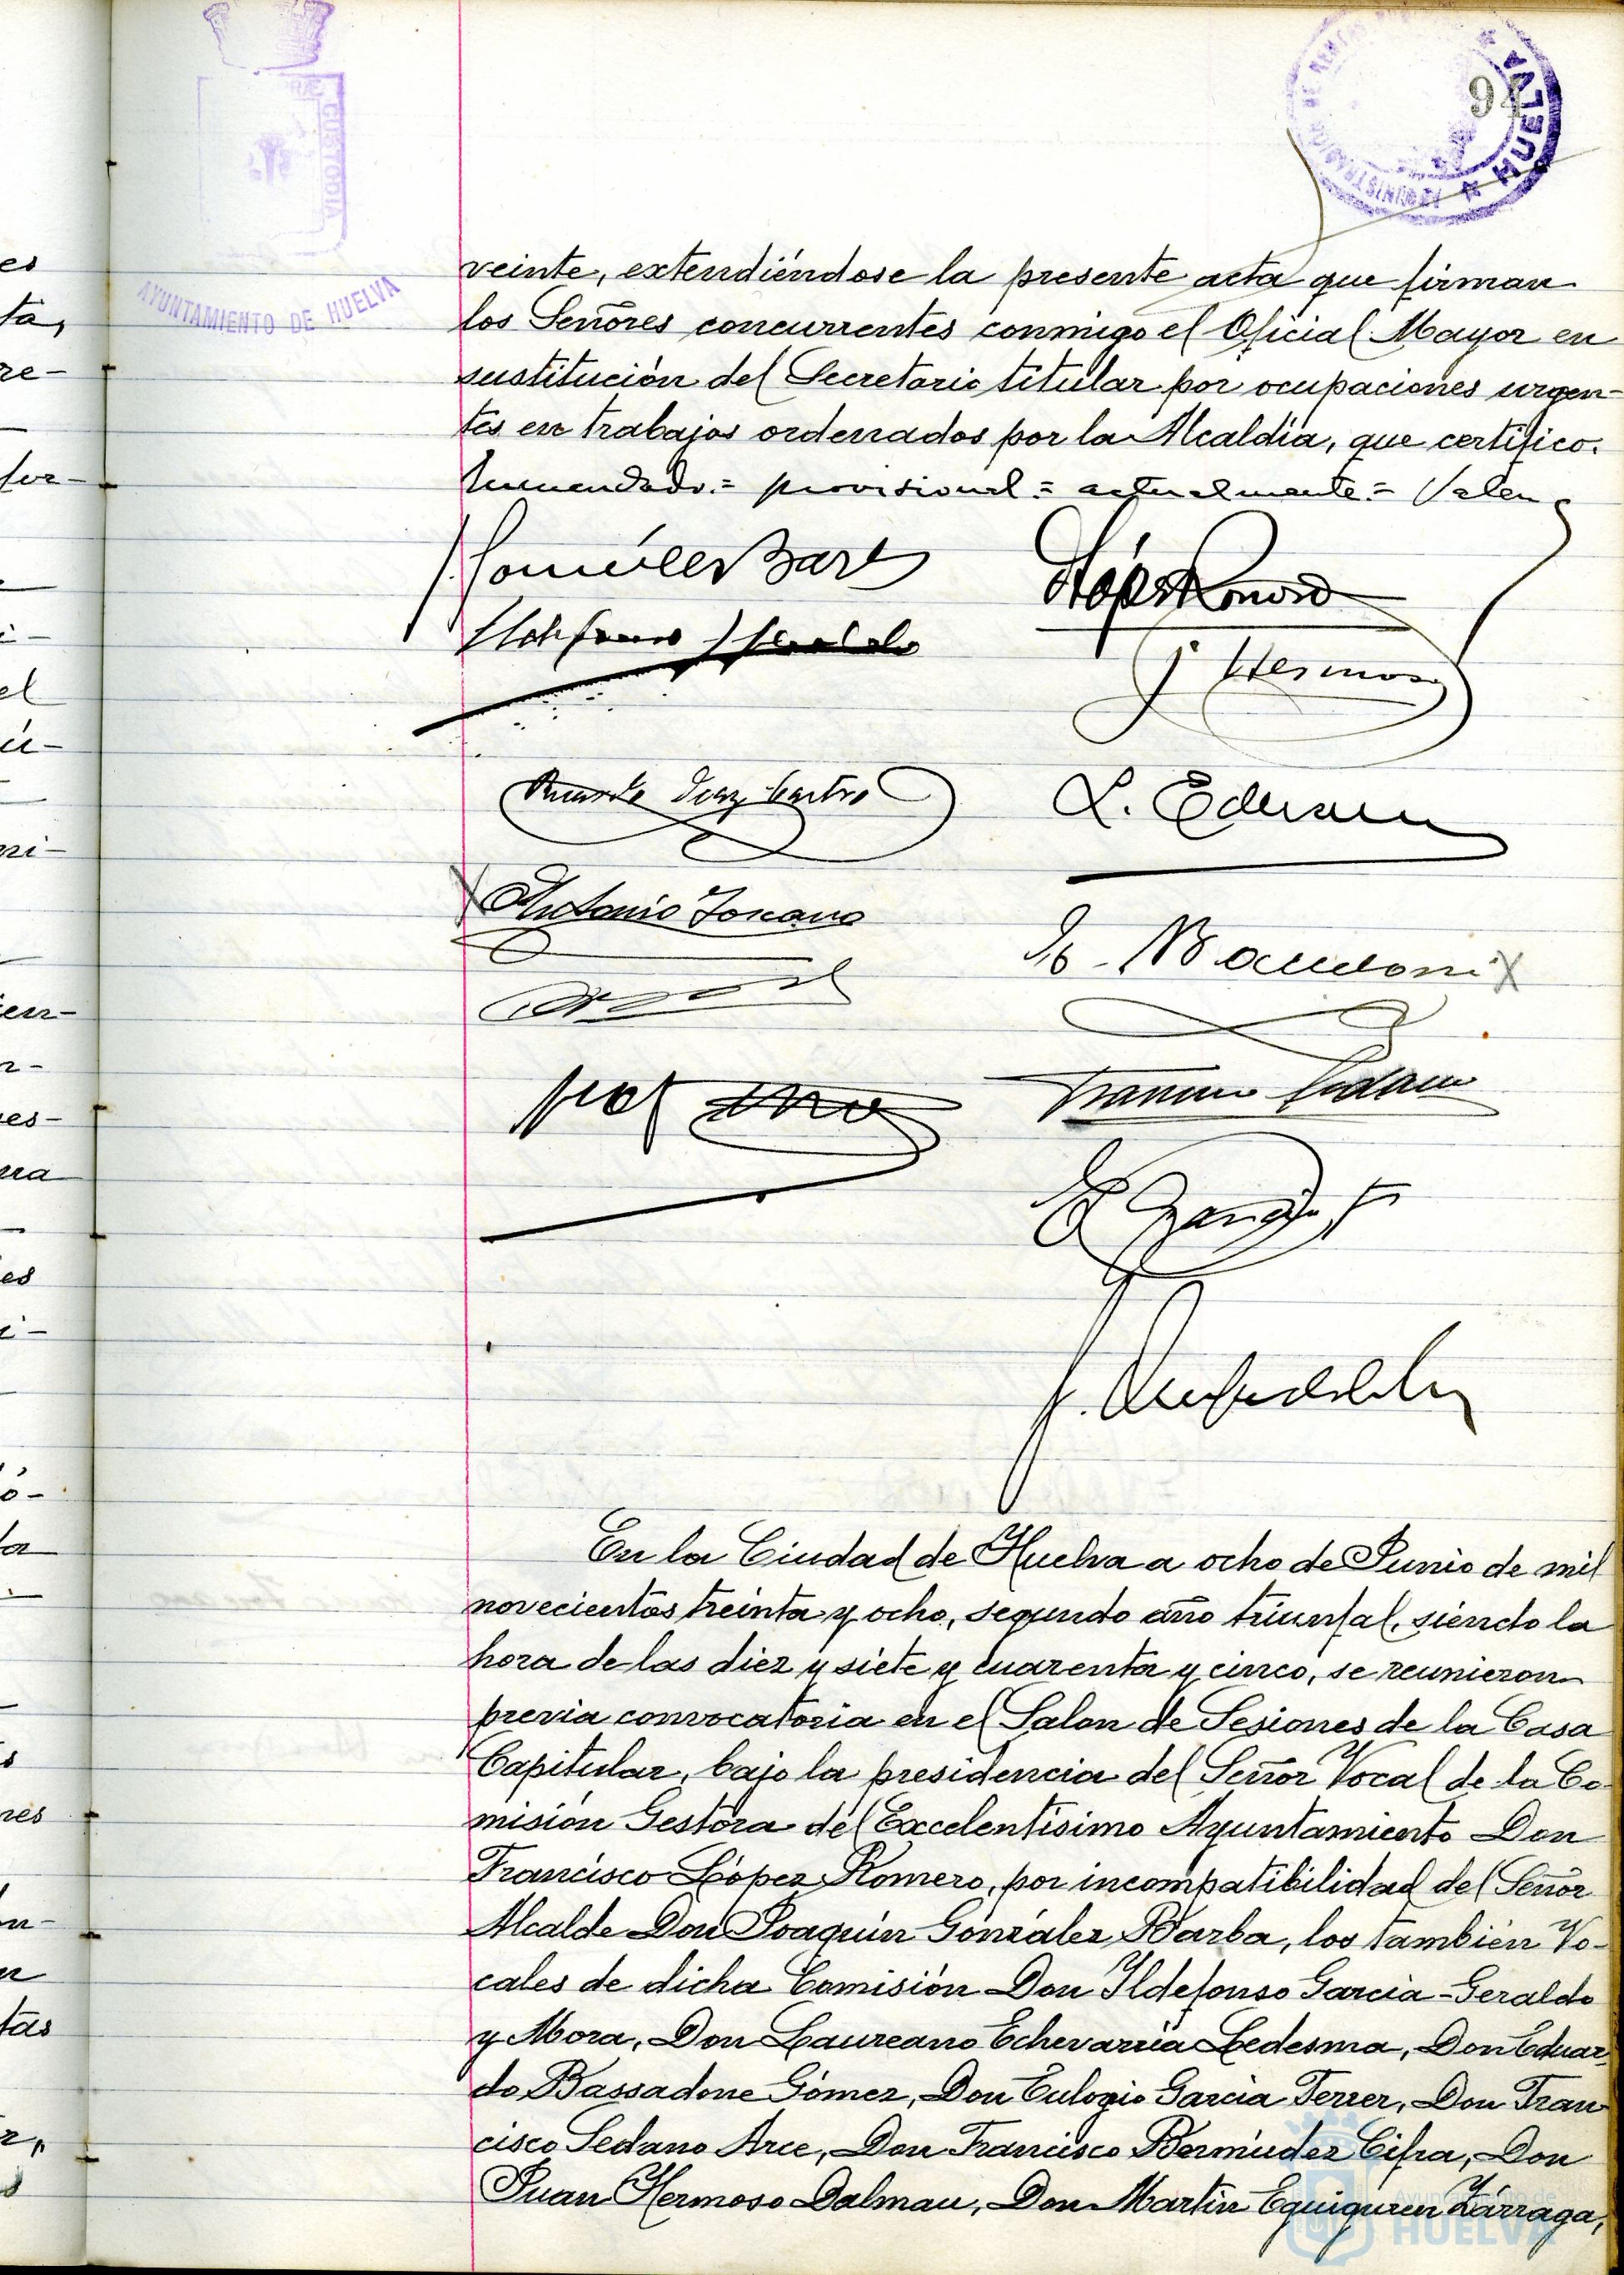 94
HUELVA
CUSTODIA
AYUNTAMIENTO DE HUELVA
veinte, extendiéndose la presente acta que firman
los Señores concurrentes conmigo el Oficial Mayor en
sustitución del Secretario titular por ocupaciones urgen-
tes en trabajos ordenados por la Alcaldía, que certifico.
Enmendado.= provisional = actualmente = Valen
J. González Barba
López Romero
J. Hermoso
Ricardo Diaz Castro
Antonio Toscano
En la Ciudad de Huelva a ocho de Junio de mil
novecientos treinta y ocho, segundo año triunfal, siendo la
hora de las diez y siete y cuarenta y cinco, se reunieron
previa convocatoria en el Salon de Sesiones de la Casa
Capitular, bajo la presidencia del Señor Vocal de la Co-
misión Gestora del Excelentísimo Ayuntamiento Don
Francisco López Romero, por incompatibilidad del Señor
Alcalde Don Joaquín González Barba, los también Vo-
cales de dicha Comisión Don Ildefonso García-Geraldo
y Mora, Don Laureano Echevarría Ledesma, Don Eduar-
do Bassadone Gómez, Don Eulogio García Ferrer, Don Fran
cisco Sedano Arce, Don Francisco Bermúdez Cifra, Don
Juan Hermoso Dalmau, Don Martín Eguiguren Zárraga,
Ayuntamiento de
HUELVA